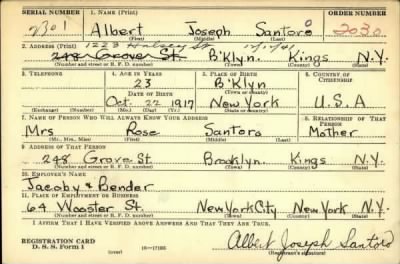 SERIAL NUMBER 1. NAME (Print) ORDER NUMBER
2301 Albert Joseph Santoro 2030
(First) (Middle) (Last)
2. ADDRESS (Print) 1223 Halsey St 10/1/41
248 Grove St. B'Klyn. Kings N.Y.
(Number and street or R. F. D. number) (Town) (County) (State)
3. TELEPHONE 4. AGE IN YEARS 5. PLACE OF BIRTH 6. COUNTRY OF CITIZENSHIP
23 B'Klyn
DATE OF BIRTH (Town or county)
Oct. 22 1917 New York U.S.A
(Exchange) (Number) (Mo.) (Day) (Yr.) (State or country)
7. NAME OF PERSON WHO WILL ALWAYS KNOW YOUR ADDRESS 8. RELATIONSHIP OF THAT PERSON
Mrs Rose Santoro Mother
(Mr., Mrs., Miss) (First) (Middle) (Last)
9. ADDRESS OF THAT PERSON
248 Grove St. Brooklyn. Kings N.Y.
(Number and street or R. F. D. number) (Town) (County) (State)
10. EMPLOYER'S NAME
Jacoby & Bender
11. PLACE OF EMPLOYMENT OR BUSINESS
64 Wooster St. New York City New York N.Y.
(Number and street or R. F. D. number) (Town) (County) (State)
I AFFIRM THAT I HAVE VERIFIED ABOVE ANSWERS AND THAT THEY ARE TRUE.
REGISTRATION CARD
D. S. S. Form 1 (over) 16—17105 Albert Joseph Santoro
(Registrant's signature)